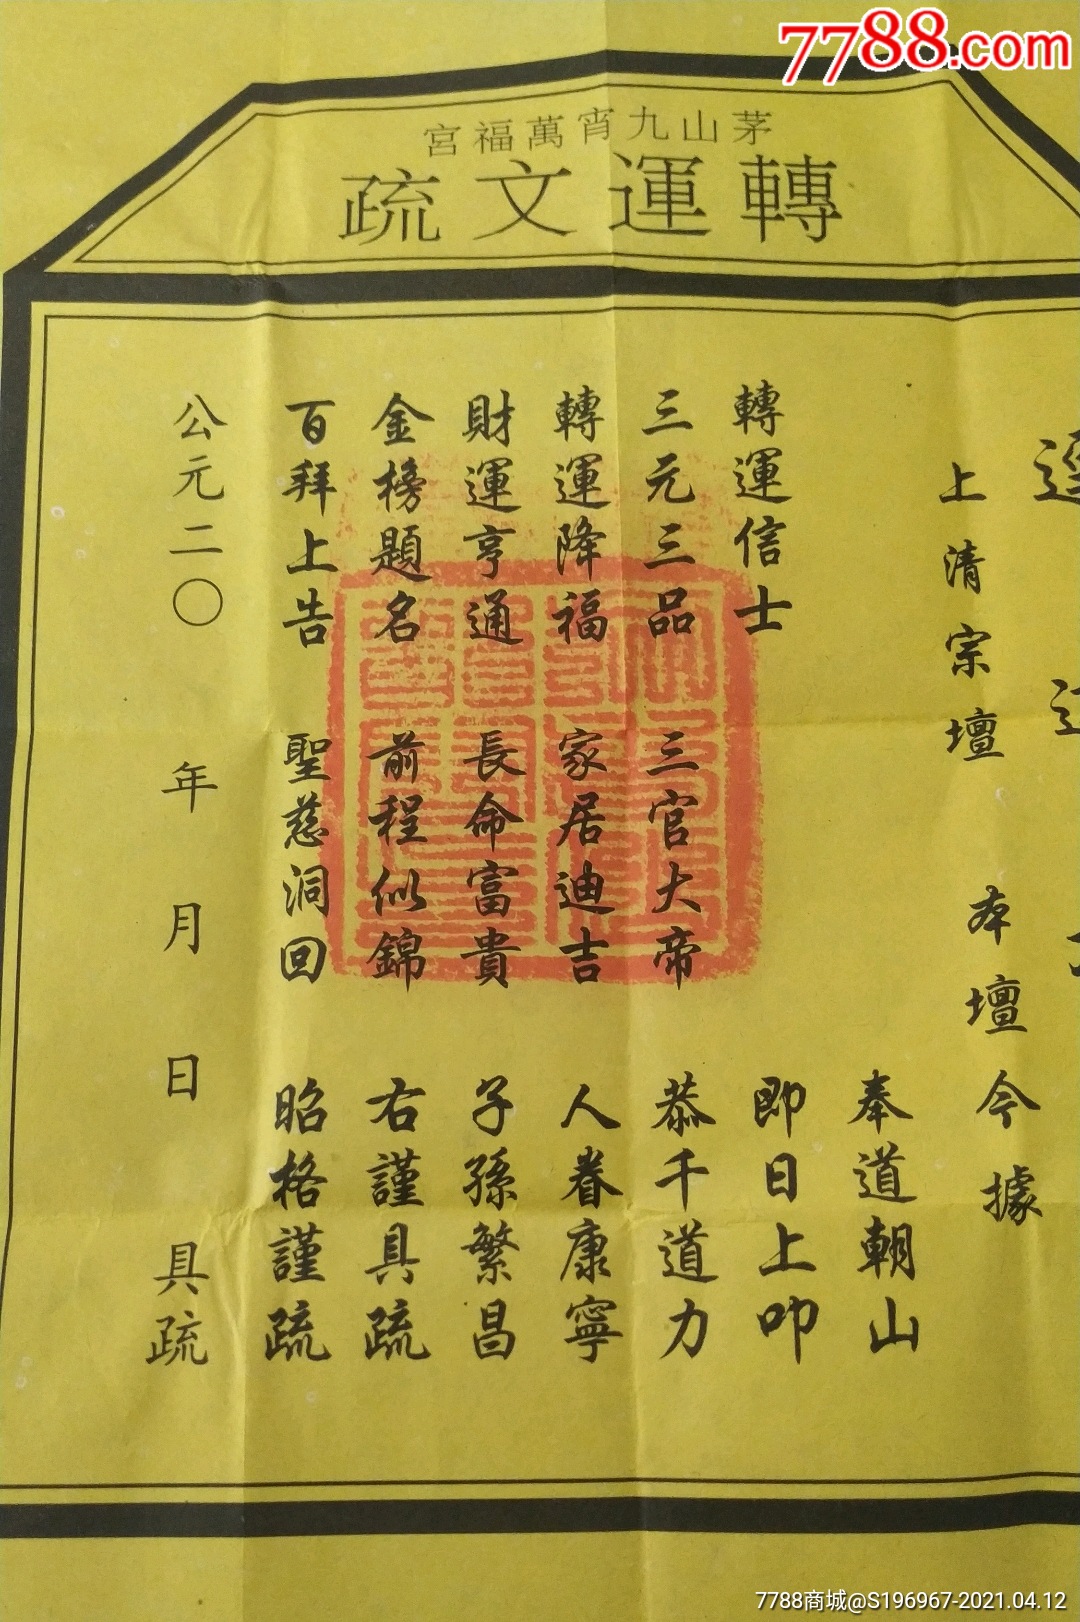 7788.com
茅山九宵萬福宮
轉運文疏
上清宗壇 本壇今據
奉道朝山
轉運信士 即日上叩
三元三品 三官大帝 恭千道力
轉運降福 家居迪吉 人眷康寧
財運亨通 長命富貴 子孫繁昌
金榜題名 前程似錦 右謹具疏
百拜上告 聖慈洞回 昭格謹疏
公元二〇 年 月 日 具疏
7788商城@S196967-2021.04.12